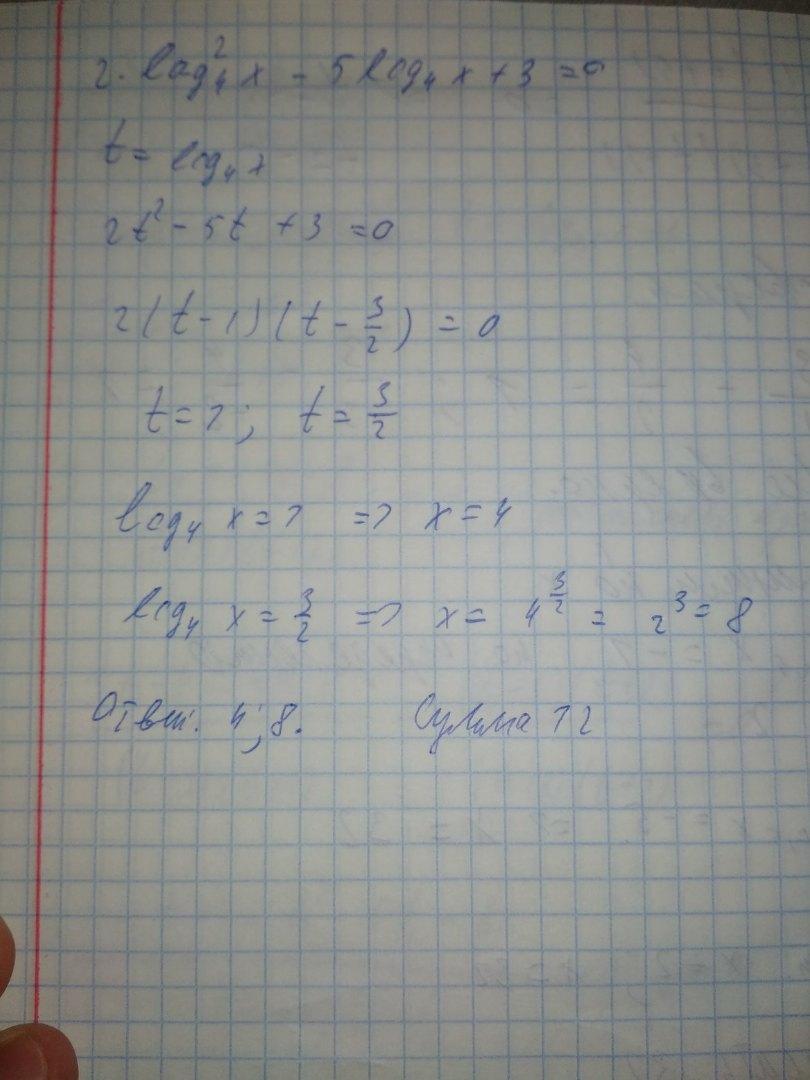 2. log₄² x - 5 log₄ x + 3 = 0
t = log₄ x
2t² - 5t + 3 = 0
2(t - 1)(t - 3/2) = 0
t = 1; t = 3/2
log₄ x = 1 => x = 4
log₄ x = 3/2 => x = 4^(3/2) = 2³ = 8
Ответ. 4; 8. Сумма 12